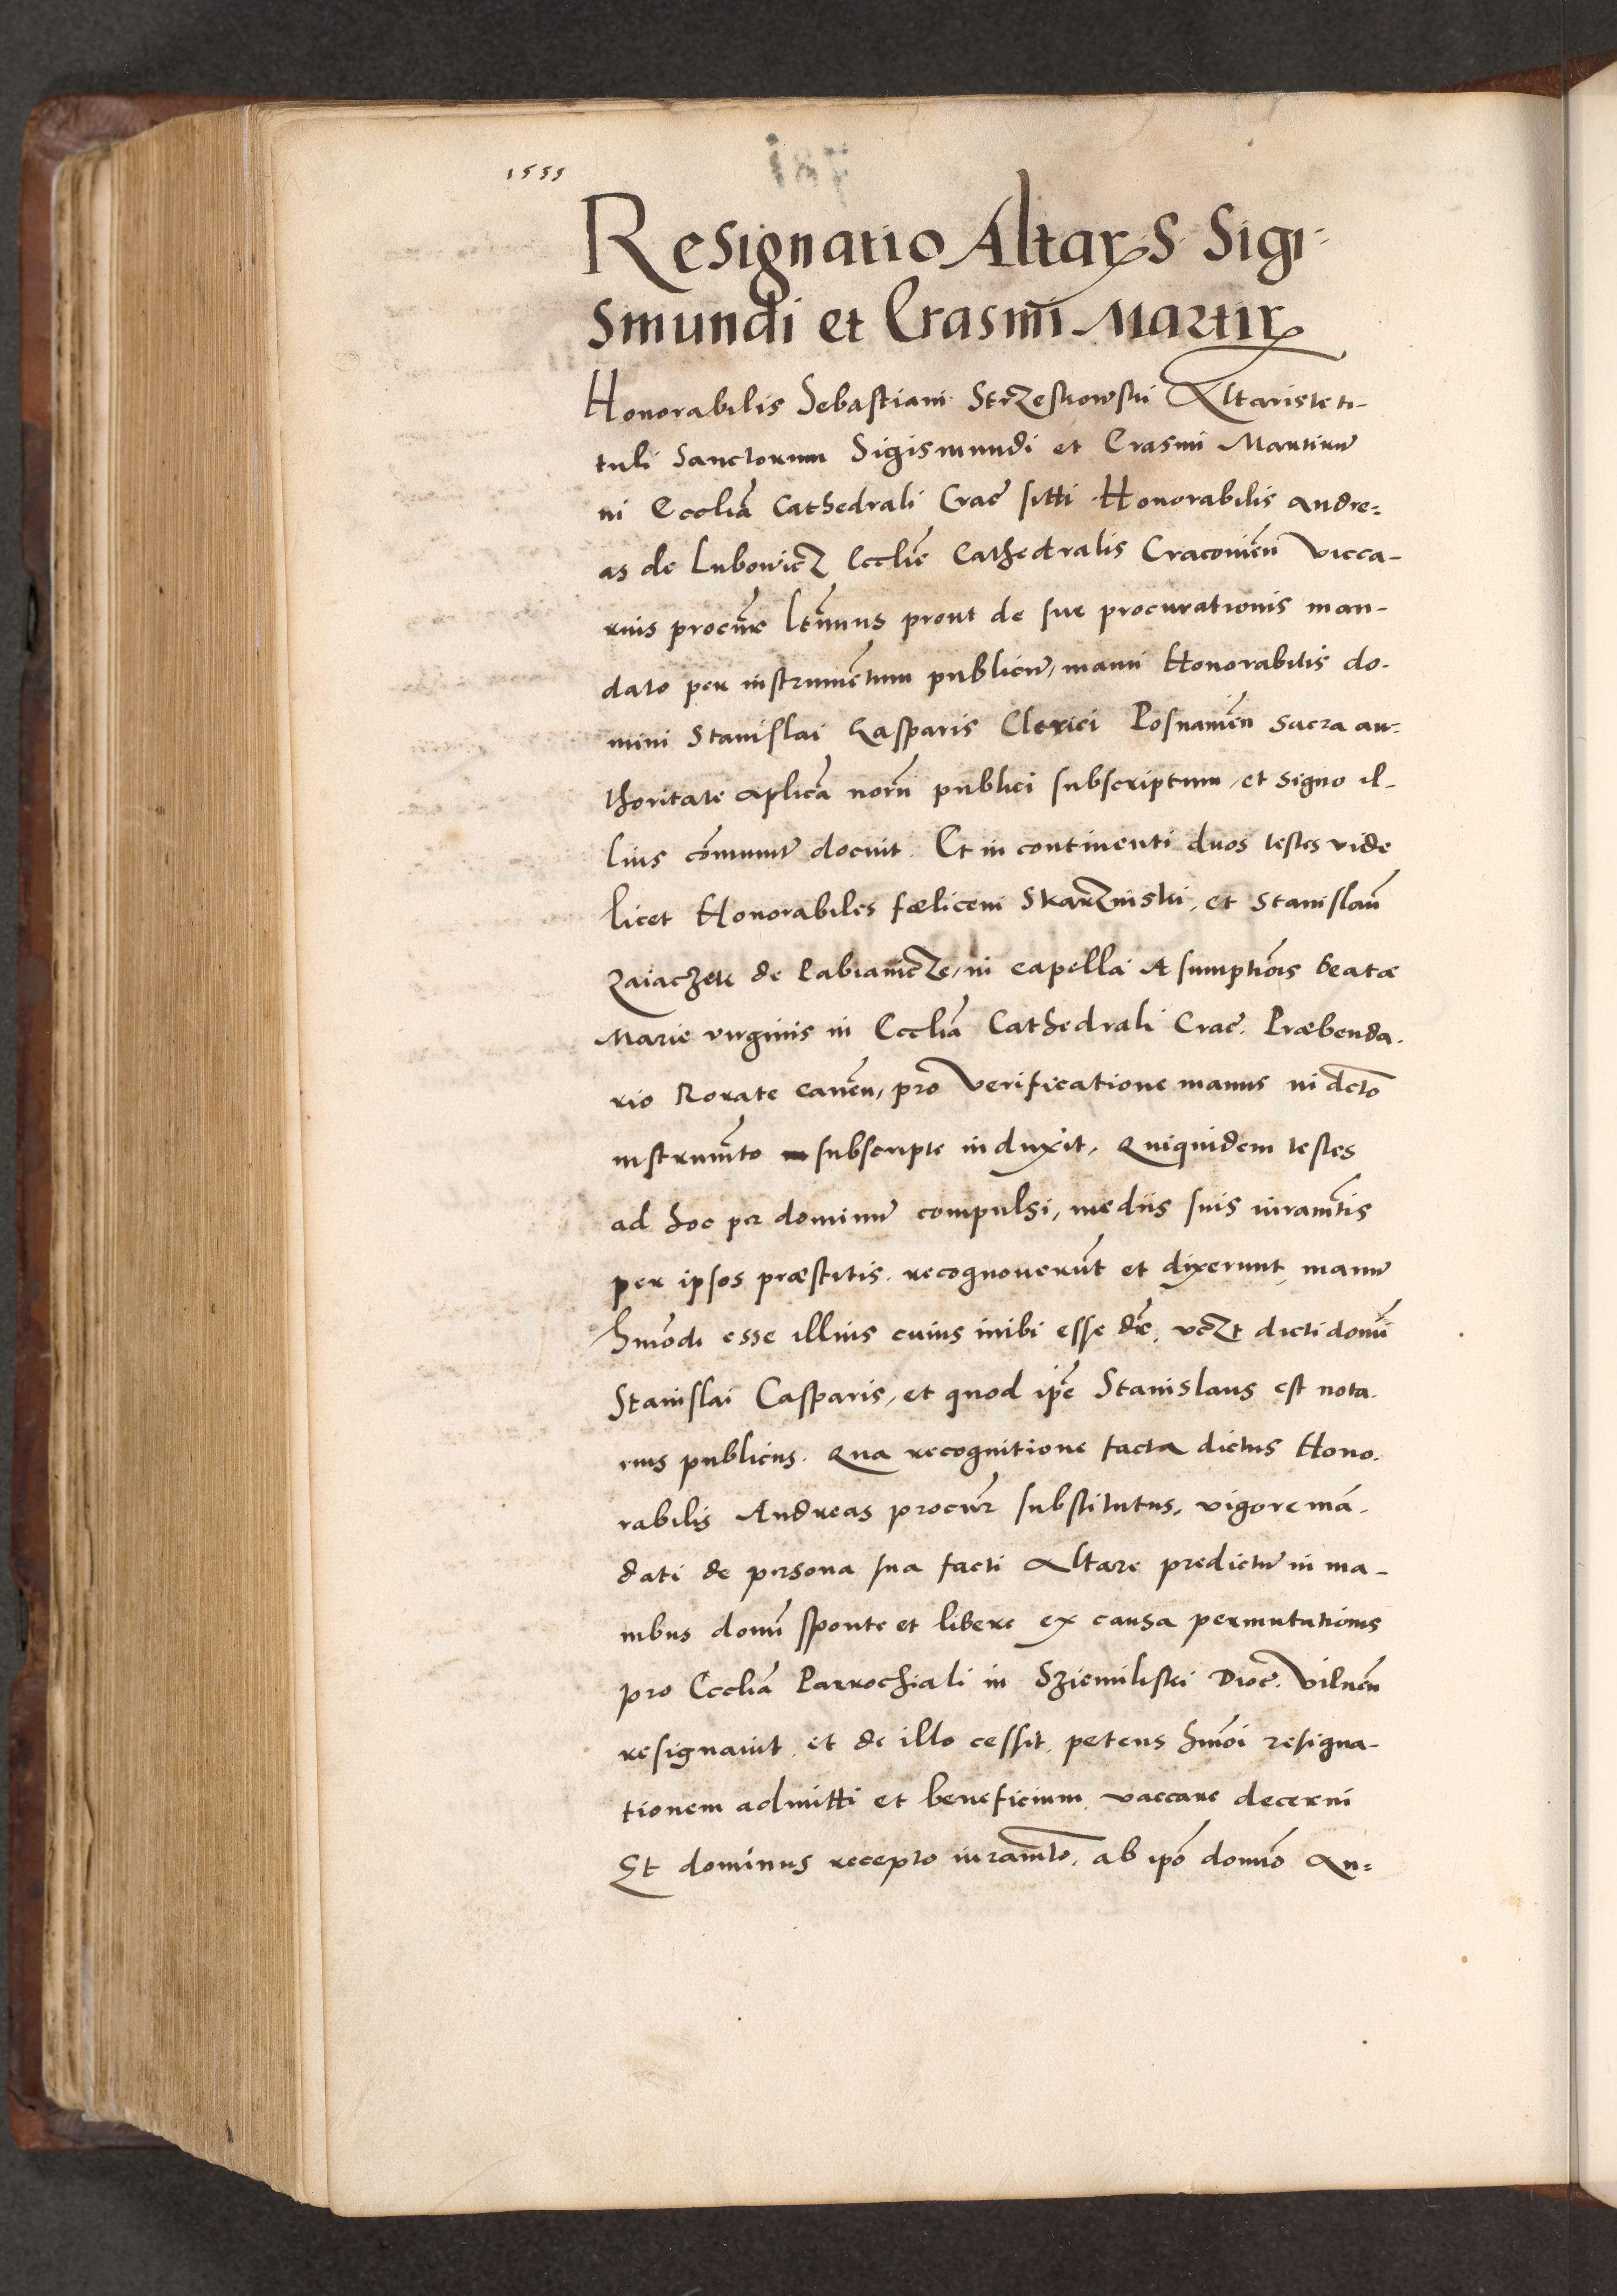 1555
Resignatio Altaris S. Sigi-
smundi et Erasmi Martir
Honorabilis Sebastiani Strzeskowski Altariste ti-
tuli Sanctorum Sigismundi et Erasmi Martirū
in Eccliā Cathedrali Crac̄ sitti Honorabilis Andre=
as de Lubowicz Ecclīe Cathedralis Craconiēn vicca-
rius procūr ltīmus prout de sue procurationis man-
dato per instrumētum publicū, manu Honorabilis do-
mini Stanislai Casparis Clerici Posnaniēn Sacra au-
thoritate aplicā norī̄ publici subscriptum, et signo il-
lius cōmunit̄ docuit. Et in continenti duos testes vide
licet Honorabiles fœlicem Skarzniski, et Stanislaū
Zaiaczek de Pabianicze, in capella Asumptiōis beatæ
Marie virginis in Eccliā Cathedrali Crac̄. Præbenda-
rio Rorate canēn, pro verificatione manus in dcto
instrumēto subscripte induxit, Quiquidem testes
ad hoc per dominū compulsi, mediis suis iuramētis
per ipsos præstitis recognouerūt et dixerunt, manū
hmōdi esse illius cuius inibi esse dr̄, vczt dicti domī
Stanislai Casparis, et quod ipē Stanislaus est nota-
rius publicus. Qua recognitione facta dictus Hono-
rabilis Andreas procūr substitutus, vigore mā-
dati de persona sua facti Altare predictū in ma-
nibus domī sponte et libere ex causa permutationis
pro Eccliā Parrochiali in Sziemiliski Dioc̄. Vilnēn
resignauit, et de illo cessit, petens hmōi resigna-
tionem admitti et beneficium vaccare decerni
Et dominus recepto iuramēto, ab ipō domīo An=